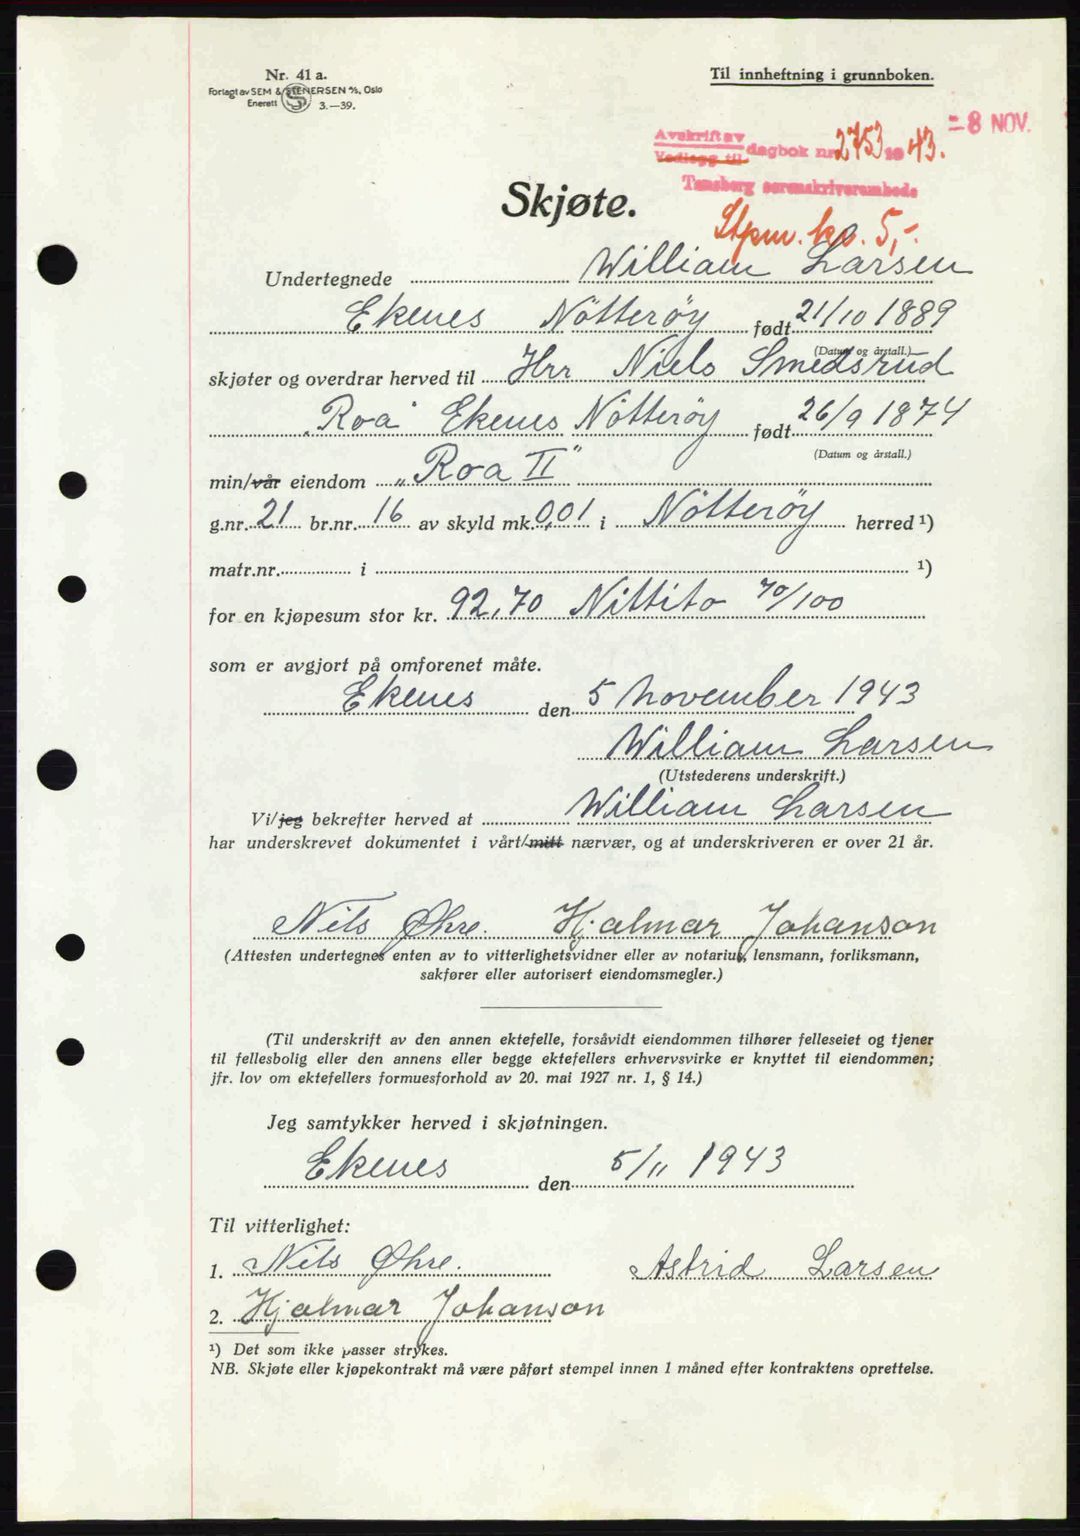 Nr. 41 a.
Forlagt av SEM & STENERSEN A/S, Oslo
Enerett S 3.—39.
Til innheftning i grunnboken.
-8 NOV.
Avskrift av
Vedlegg til dagbok nr 2753 19 43.
Tønsberg sorenskriverembede
Stpm. kr. 5,-.
Skjøte.
Undertegnede William Larsen
Ekenes Nötterøy født 21/10 1889
(Datum og årstall.)
skjøter og overdrar herved til Hrr Niels Smedsrud
"Roa" Ekenes Nötterøy født 26/9 1874
(Datum og årstall.)
min/vår eiendom „Roa II"
g.nr. 21 br.nr. 16 av skyld mk. 0,01 i Nötterøy herred ¹)
matr.nr. i ¹)
for en kjøpesum stor kr. 92,70 Nittito 70/100
som er avgjort på omforenet måte.
Ekenes den 5 November 1943
William Larsen
(Utstederens underskrift.)
Vi/jeg bekrefter herved at William Larsen
har underskrevet dokumentet i vårt/mitt nærvær, og at underskriveren er over 21 år.
Nils Øhre. Hjalmar Johanson
(Attesten undertegnes enten av to vitterlighetsvidner eller av notarius, lensmann, forliksmann,
sakfører eller autorisert eiendomsmegler.)
(Til underskrift av den annen ektefelle, forsåvidt eiendommen tilhører felleseiet og tjener
til fellesbolig eller den annens eller begge ektefellers erhvervsvirke er knyttet til eiendommen;
jfr. lov om ektefellers formuesforhold av 20. mai 1927 nr. 1, § 14.)
Jeg samtykker herved i skjøtningen.
Ekenes den 5/11 1943
Til vitterlighet:
1. Nils Øhre. Astrid Larsen
2. Hjalmar Johanson
¹) Det som ikke passer strykes.
NB. Skjøte eller kjøpekontrakt må være påført stempel innen 1 måned efter kontraktens oprettelse.